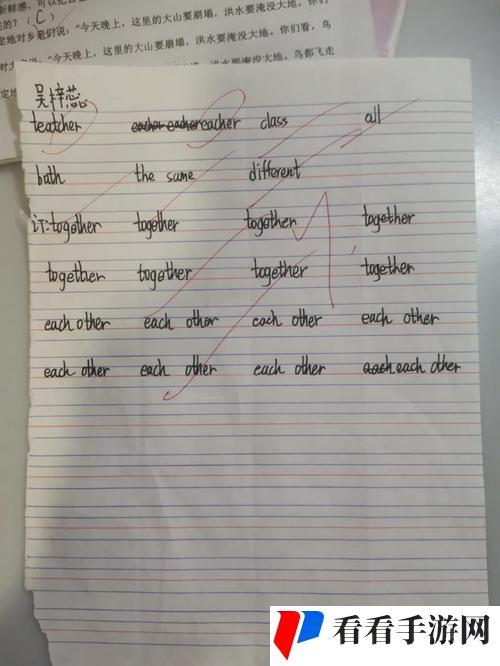 新鲜感,可以把
的?(C)
定地对乡亲们说:“今天晚上,这里的大山要崩塌,洪水要淹没大地。你们
对大 说:“今天晚上,这里的大山要崩塌,洪水要淹没大地。你们看,鸟
定地 洪水要淹没大地。鸟都飞走
吴梓蕊
teatcher eacher eachereacher class all
bath the same different
订:together together together together
together together together together
each other each other each other each other
each other each other each other each each other
看看手游网